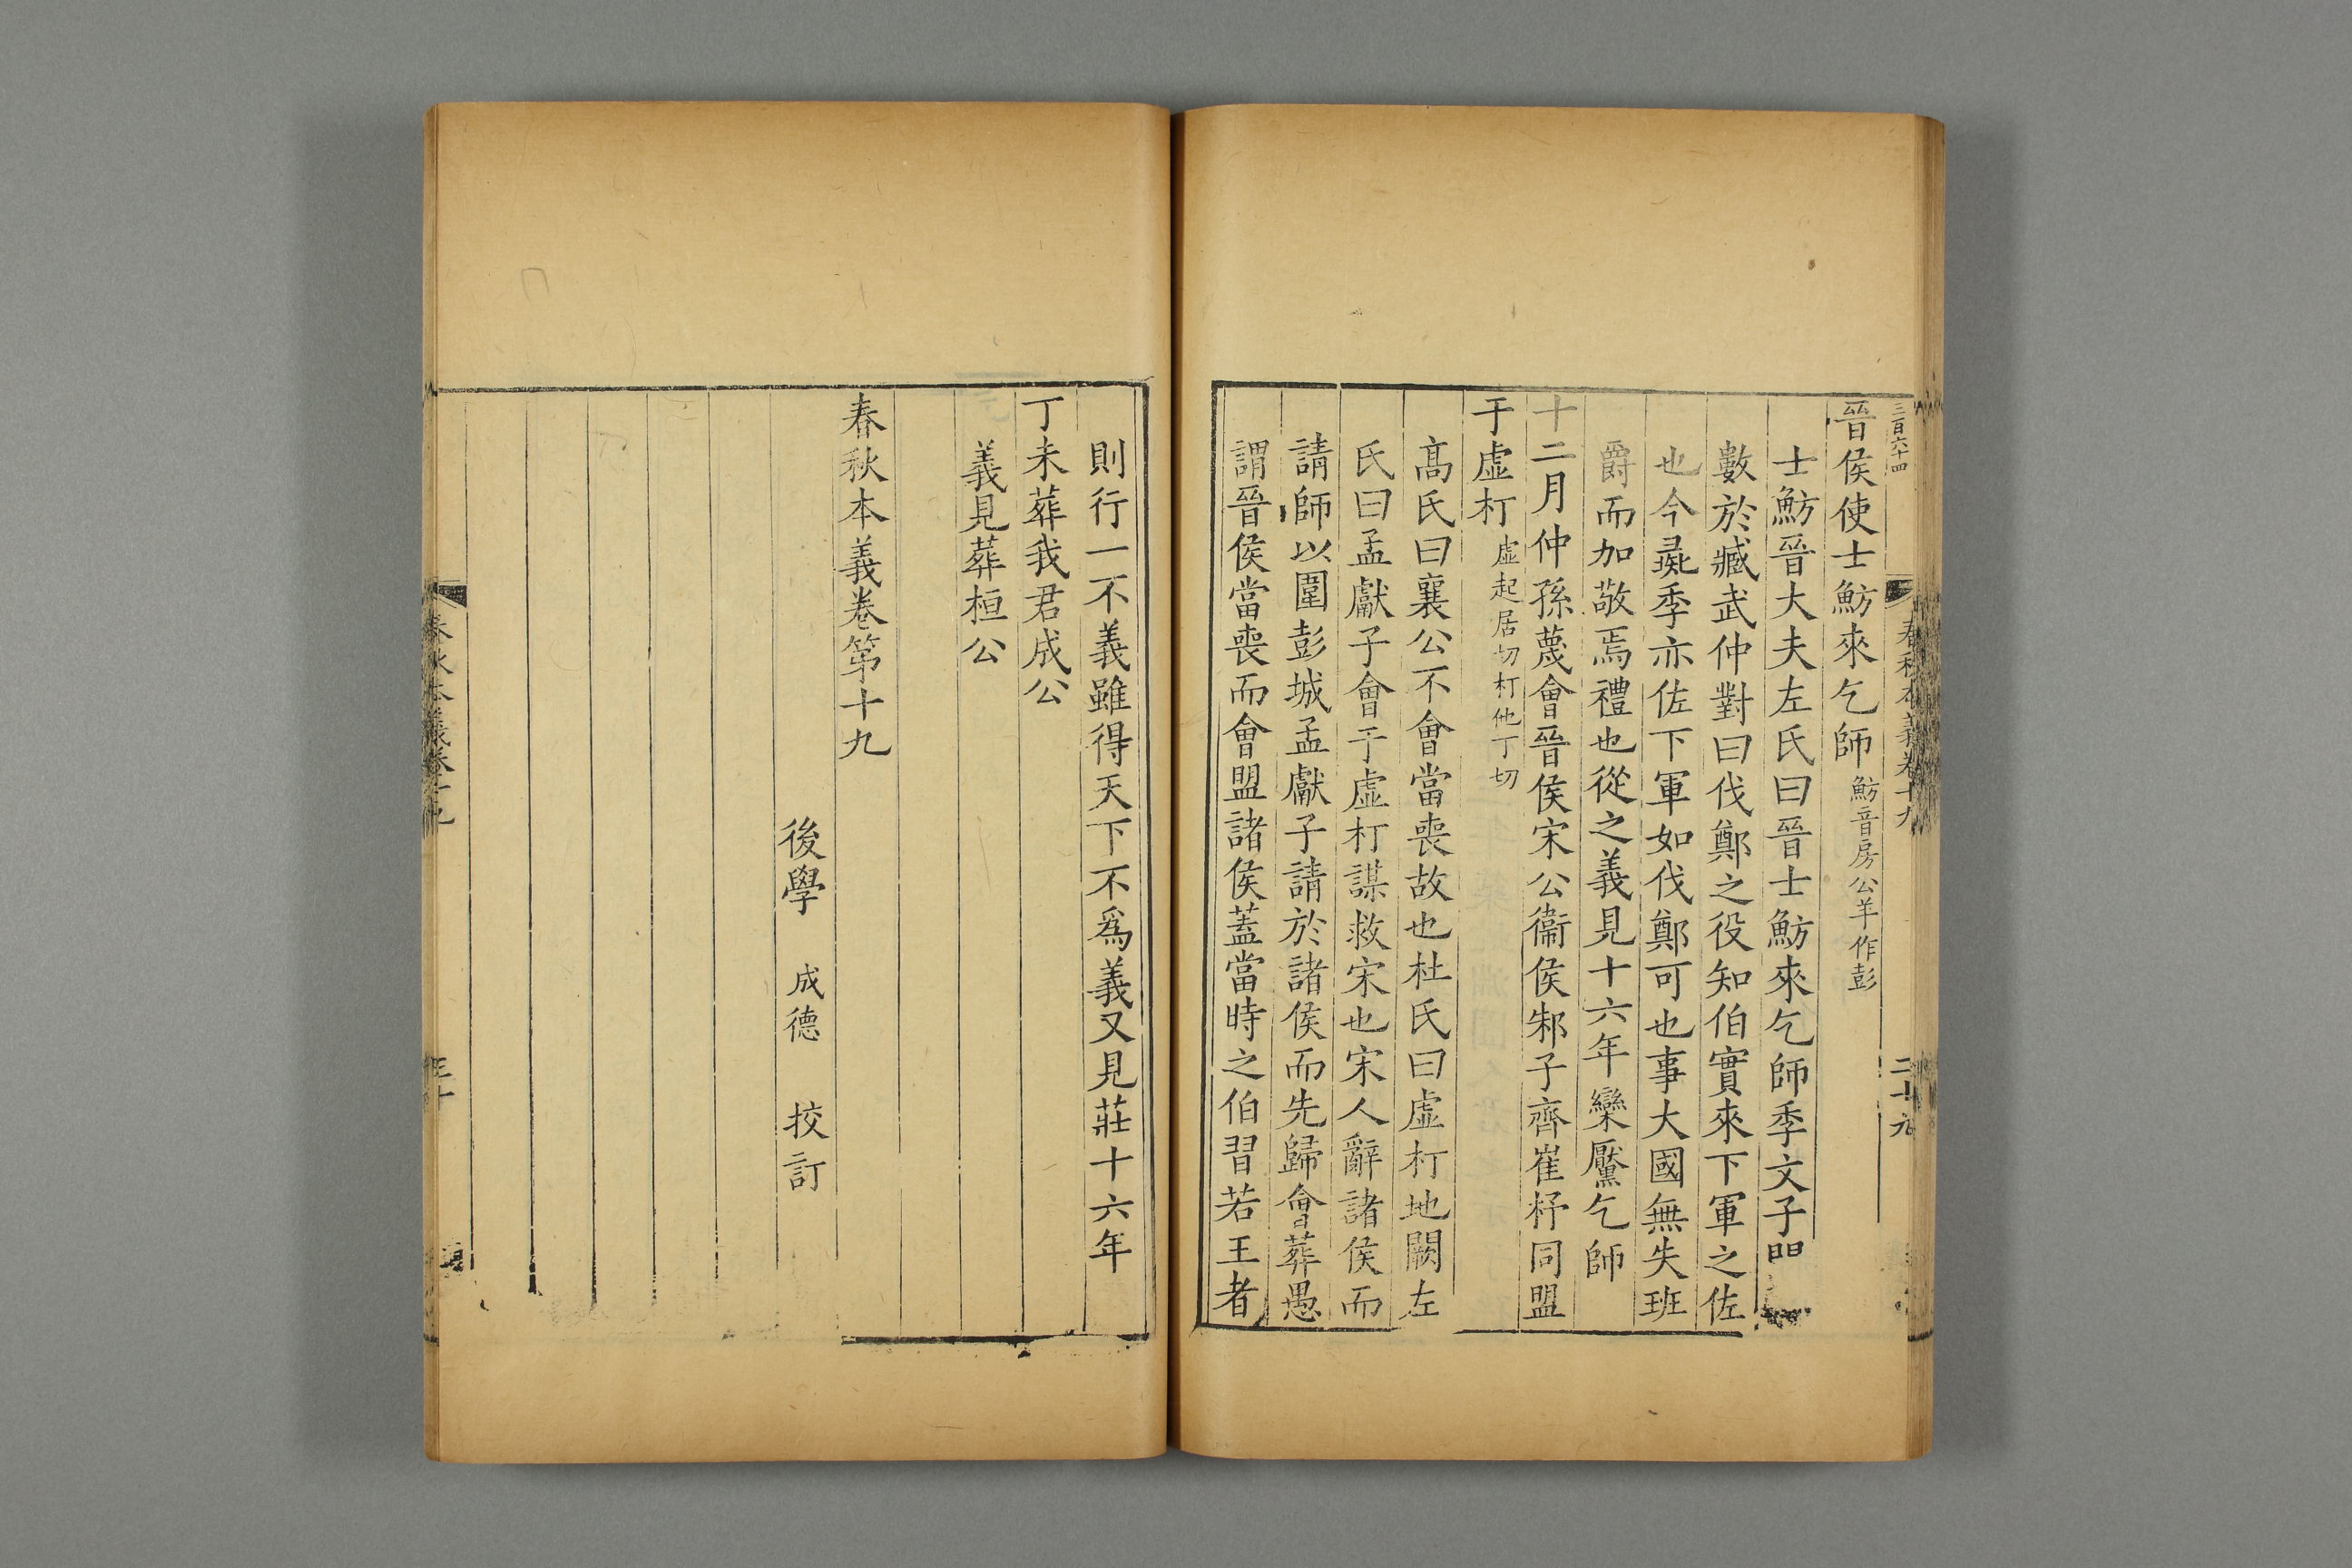 三百六十四
春秋本義卷十九
二十九
晉侯使士魴來乞師魴音房公羊作彭
士魴晉大夫左氏曰晉士魴來乞師季文子問
數於臧武仲對曰伐鄭之役知伯實來下軍之佐
也今彘季亦佐下軍如伐鄭可也事大國無失班
爵而加敬焉禮也從之義見十六年欒黶乞師
十二月仲孫蔑會晉侯宋公衞侯邾子齊崔杼同盟
于虛朾虛起居切朾他丁切
髙氏曰襄公不會當喪故也杜氏曰虛朾地闕左
氏曰孟獻子會于虛朾謀救宋也宋人辭諸侯而
請師以圍彭城孟獻子請於諸侯而先歸會葬愚
謂晉侯當喪而會盟諸侯蓋當時之伯習若王者
則行一不義雖得天下不爲義又見莊十六年
丁未葬我君成公
義見葬桓公
春秋本義卷第十九
後學 成德 挍訂
春秋本義卷十九
三十